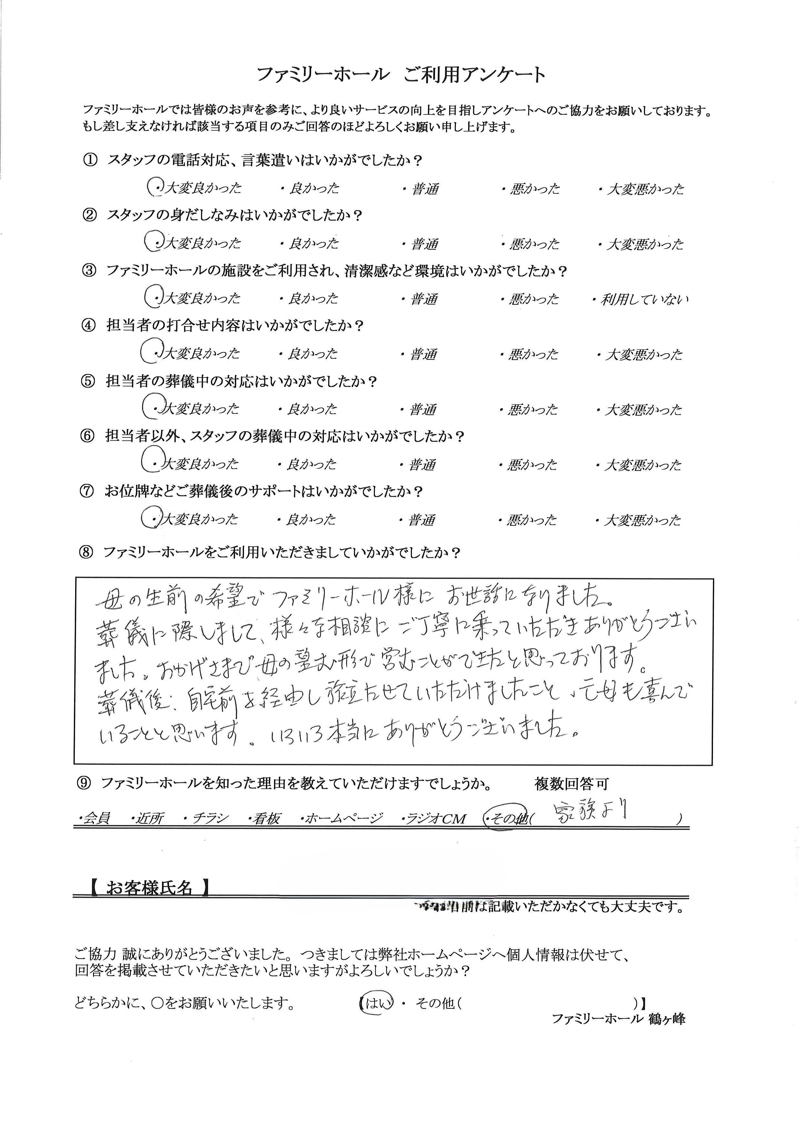 ファミリーホール ご利用アンケート
ファミリーホールでは皆様のお声を参考に、より良いサービスの向上を目指しアンケートへのご協力をお願いしております。
もし差し支えなければ該当する項目のみご回答のほどよろしくお願い申し上げます。
① スタッフの電話対応、言葉遣いはいかがでしたか？
・大変良かった ・良かった ・普通 ・悪かった ・大変悪かった
② スタッフの身だしなみはいかがでしたか？
・大変良かった ・良かった ・普通 ・悪かった ・大変悪かった
③ ファミリーホールの施設をご利用され、清潔感など環境はいかがでしたか？
・大変良かった ・良かった ・普通 ・悪かった ・利用していない
④ 担当者の打合せ内容はいかがでしたか？
・大変良かった ・良かった ・普通 ・悪かった ・大変悪かった
⑤ 担当者の葬儀中の対応はいかがでしたか？
・大変良かった ・良かった ・普通 ・悪かった ・大変悪かった
⑥ 担当者以外、スタッフの葬儀中の対応はいかがでしたか？
・大変良かった ・良かった ・普通 ・悪かった ・大変悪かった
⑦ お位牌などご葬儀後のサポートはいかがでしたか？
・大変良かった ・良かった ・普通 ・悪かった ・大変悪かった
⑧ ファミリーホールをご利用いただきましていかがでしたか？
母の生前の希望でファミリーホール様にお世話になりました。
葬儀に際しまして、様々な相談にご丁寧に乗っていただきありがとうござい
ました。おかげさまで母の望む形で営むことができたと思っております。
葬儀後、自宅前を経由し旅立たせていただけましたこと、母も喜んで
いることと思います。いろいろ本当にありがとうございました。
⑨ ファミリーホールを知った理由を教えていただけますでしょうか。 複数回答可
・会員 ・近所 ・チラシ ・看板 ・ホームページ ・ラジオCM ・その他( 家族より )
【 お客様氏名 】
は記載いただかなくても大丈夫です。
ご協力 誠にありがとうございました。つきましては弊社ホームページへ個人情報は伏せて、
回答を掲載させていただきたいと思いますがよろしいでしょうか？
どちらかに、○をお願いいたします。 【はい ・ その他( )】
ファミリーホール 鶴ヶ峰